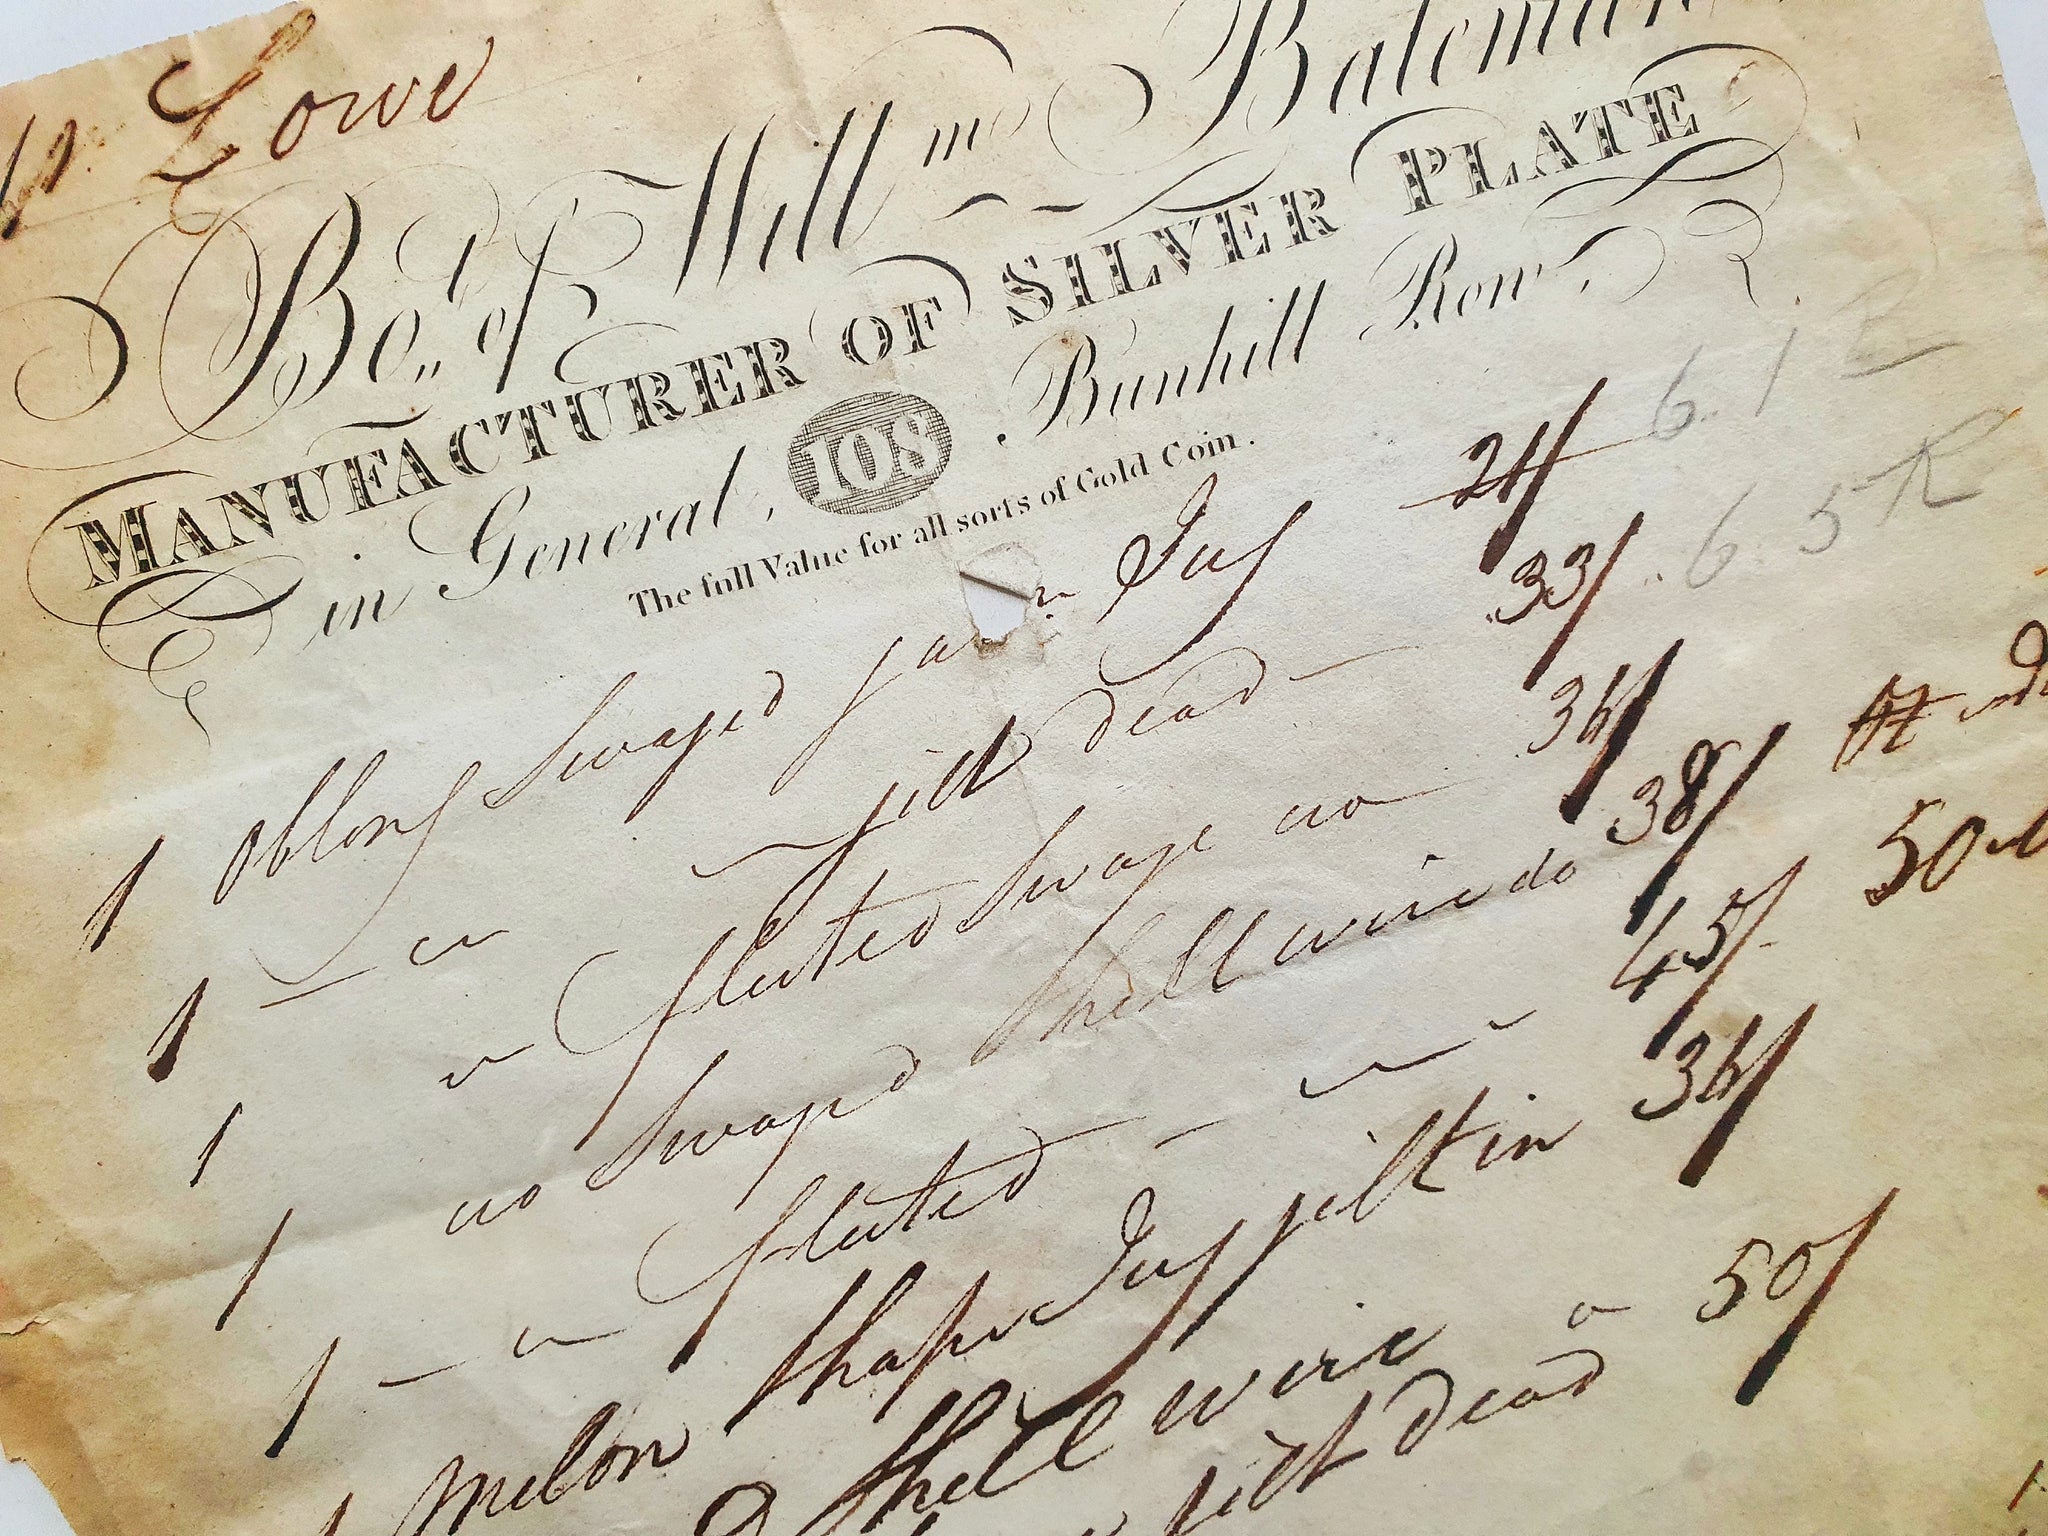 Mr. Lowe
Bo,,t of Willm. Bateman
MANUFACTURER OF SILVER PLATE
in General, 108 Bunhill Row,
The full Value for all sorts of Gold Coin.
1 Oblong Swaged Jug 24/
1 — " " gilt dead — 33/
1 " Fluted Swage do — 36/
1 do Swaged Shell wire do 38/
1 — " Fluted — " " 45/ 50
Melon Shape Jug gilt in 36/
Shell wire " 50/
gilt dead